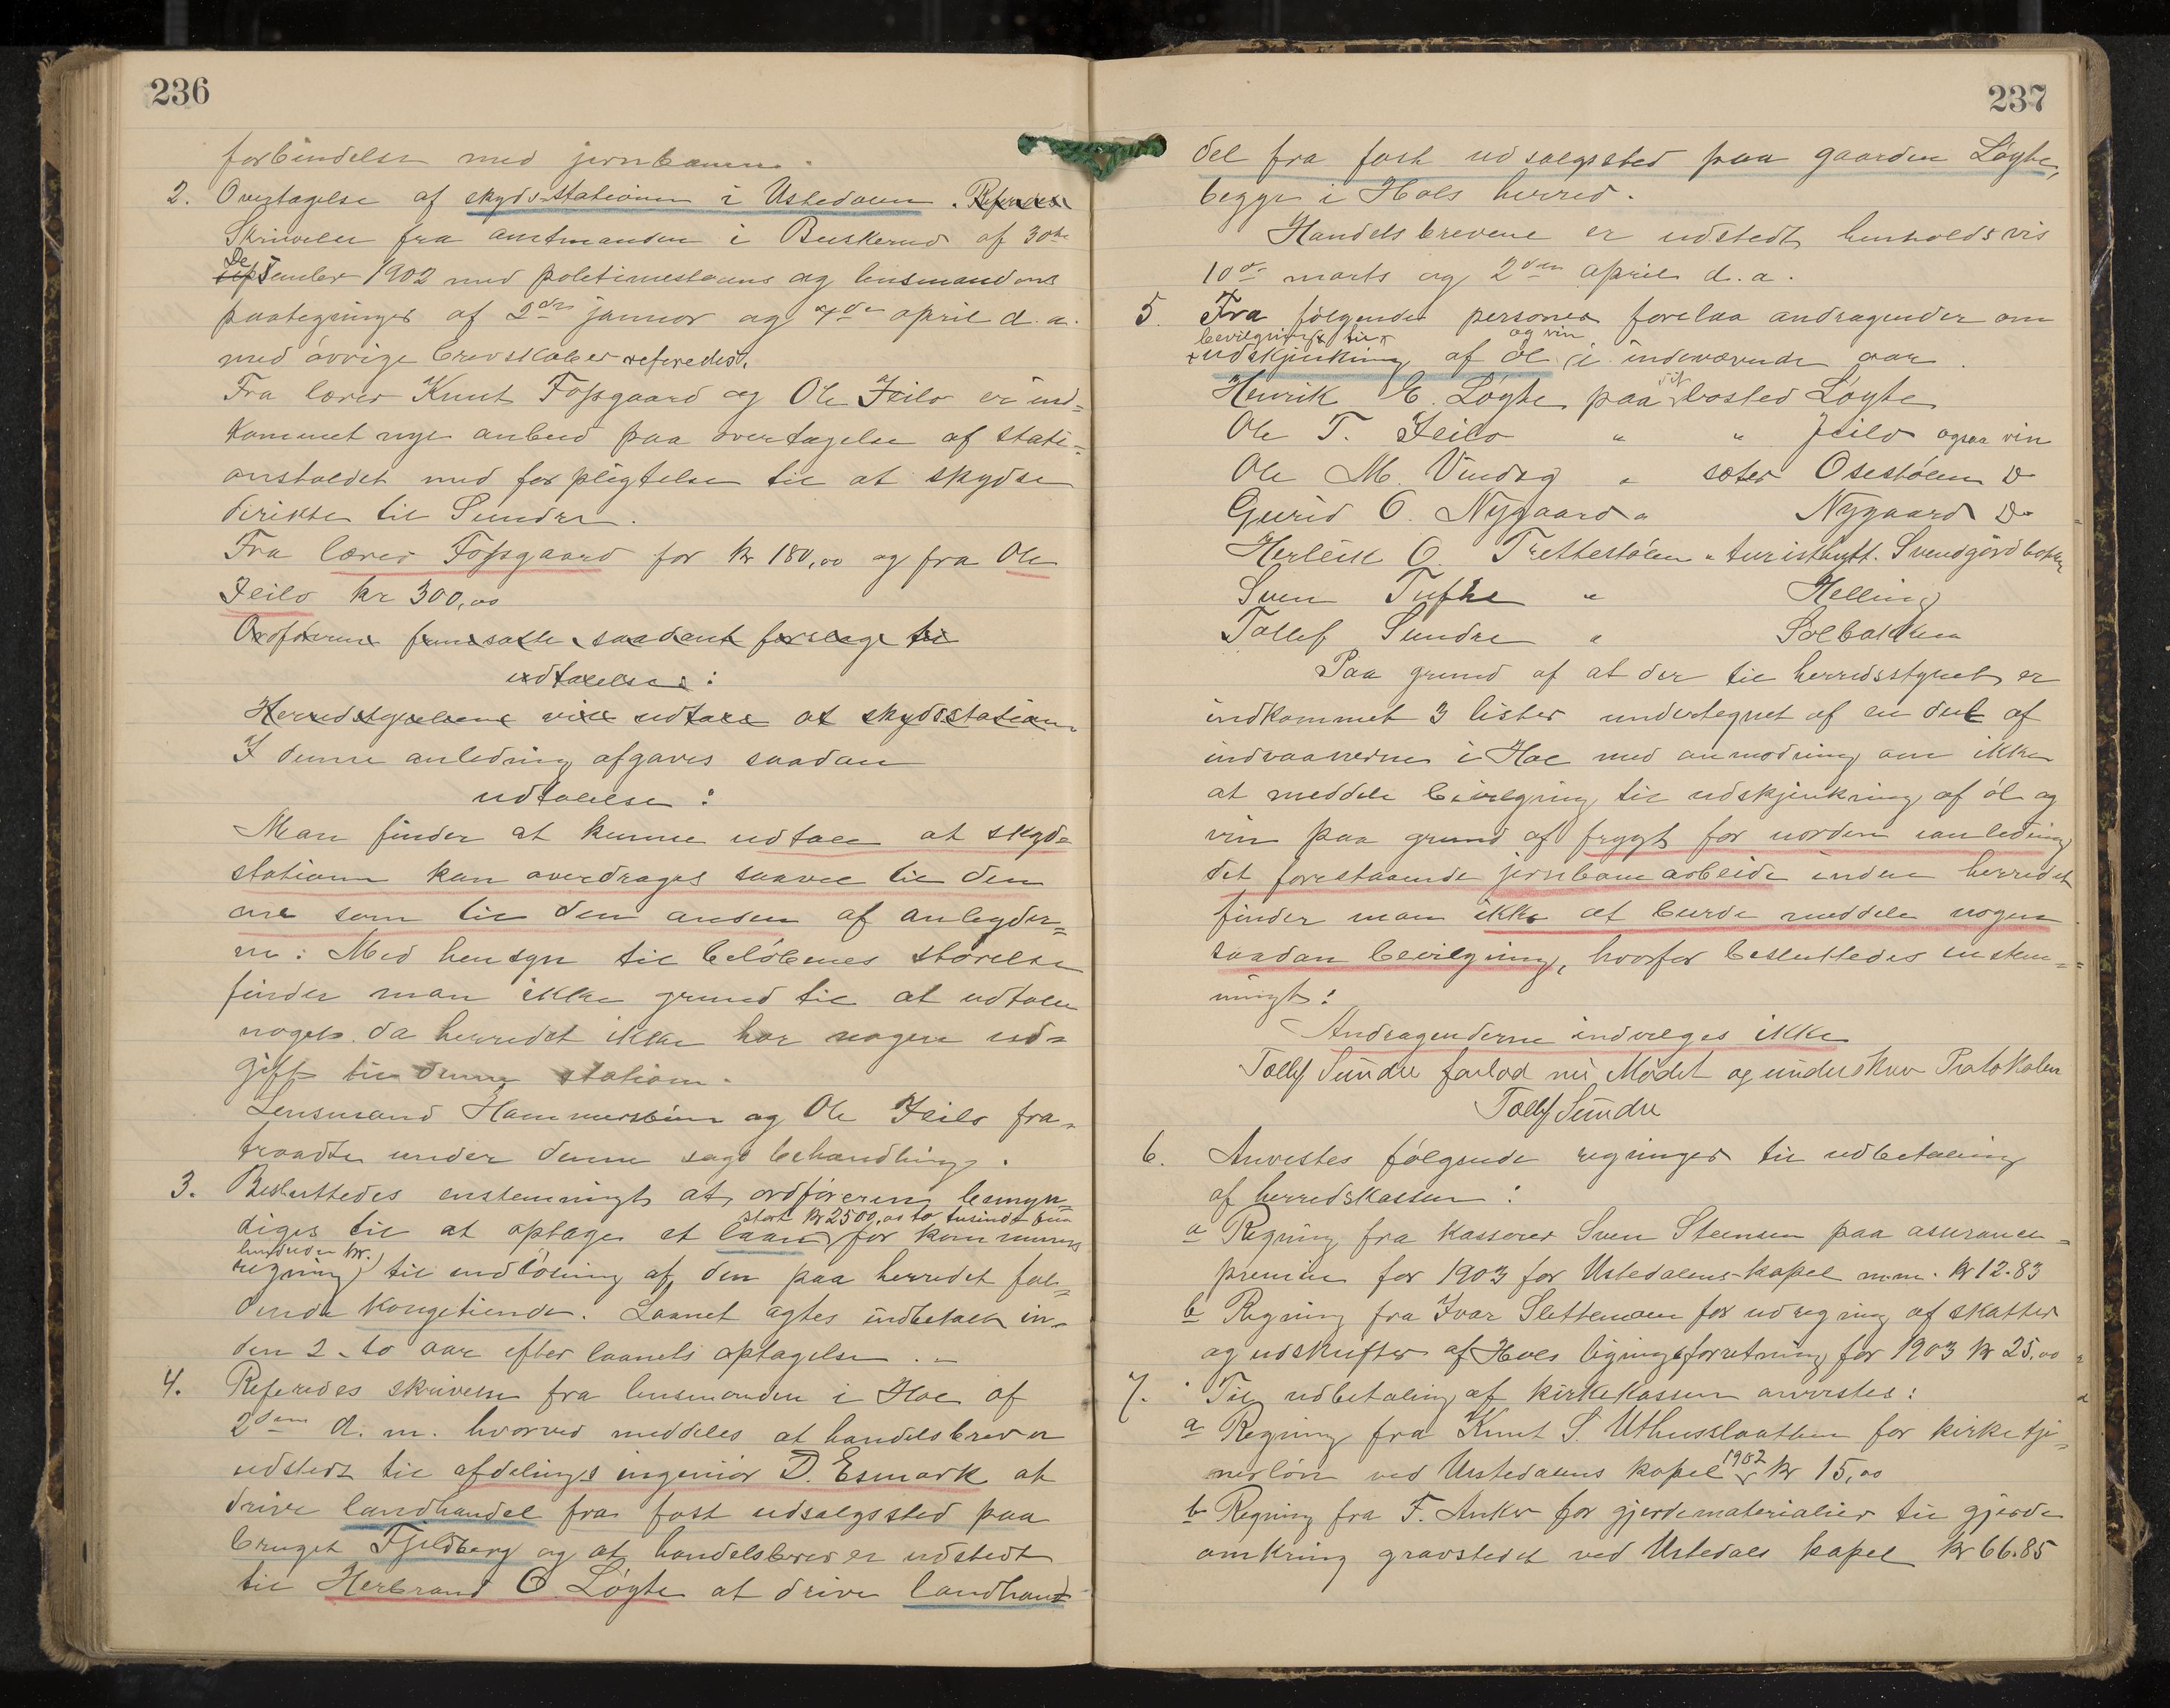 236
forbindelse med jernbanen.
2. Overtagelse af skydsstationen i Ustedalen. Referedes
Skrivelse fra amtmanden i Buskerud af 30te
De
september 1902 med politimesterens og lensmandens
paategninger af 2den januar og 4de april d.a.
med øvrige brevskaber referedes.
Fra lærer Knut Fossgaard og Ole Jeilo er ind-
kommet nye anbud paa overtagelse af stati-
onsholdet med forpligtelse til at skydse
direkte til Sundre.
Fra lærer Fossgaard for kr 180,00 og fra Ole
Jeilo kr 300,00
Ordføreren fremsatte saadant forslag til
udtalelse:
Herredstyrelsen vil udtale at skydsstation
I denne anledning afgaves saadan
udtalelse:
Man finder at kunne udtale at skyds
stationen kan overdrages saavel til den
ene som til den anden af anbyder-
ne: Med hensyn til beløbenes størelse
finder man ikke grund til at udtale
noget da herredet ikke har nogen ud-
gift til denne station.
Lensmand Hammersbøen og Ole Jeilo fra-
traadte under denne sags behandling.
3. Besluttedes enstemmigt at ordføreren bemyn-
stort kr 2500,00 to tusinde fem
diges til at optage et laan for kommunens
hundrede kr.
regning til indløsning af den paa herredet fal-
dende Kongetiende. Laanet agtes indbetalt in-
den 2 - to aar efter laanets optagelse. -
4. Referedes skrivelse fra lensmanden i Hol af
2den d.m. hvorved meddeles at handelsbrev er
udstedt til afdelings ingeniør D. Esmark at
drive landhandel fra fast udsalgssted paa
bruget Fjeldberg og at handelsbrev er udstedt
til Herbrand O. Løgte at drive landhan-
237
del fra fast udsalgssted paa gaarden Løgte,
begge i Hols herred.
Handelsbrevene er udstedt henholdsvis
10de marts og 2den april d.a.
5. Fra følgende personer forelaa andragender om
bevilgning til og vin
udskjenkning af øl i indeværende aar
sit
Henrik E. Løgte paa bosted Løgte
Ole T. Jeilo " " Jeilo ogsaa vin
Ole M. Vindeg " sæter Osestølen Do
Gurid O. Nygaard " Nygaard Do
Herleik O. Trettestølen " turisthytt. Svendgardbotten
Sven Tufte " Helling
Tollef Sundre " Solbakken
Paa grund af at der til herredsstyret er
indkommet 3 lister undertegnet af en del af
indvaanerne i Hol med anmodning om ikke
at meddele bevilgning til udskjenkning af øl og
vin paa grund af frygt for uorden i anledning
det forestaaende jernbanearbeide inden herredet
finder man ikke at burde meddele nogen
saadan bevilgning, hvorfor besluttedes enstem-
migt:
Andragenderne indvilges ikke
Tollef Sundre forlod nu Mødet og underskrev Protokolen
Tollef Sundre
6. Anvistes følgende regninger til udbetaling
af herredskassen:
a Regning fra Kasserer Sven Steensen paa assurance-
premie for 1903 for Ustedalens-kapel m.m. kr 12.83
b Regning fra Ivar Slettemoen for udregning af skatter
og udskrifter af Hols ligningsforretning for 1903 kr 25,00
7. Til udbetaling af kirkekassen anvistes:
a Regning fra Knut S. Uthusslaatten for kirketje-
1902
nerløn ved Ustedalens kapel kr 15,00
b Regning fra F. Anker for gjerdematerialier til gjerde
omkring gravstedet ved Ustedals kapel kr 66.85